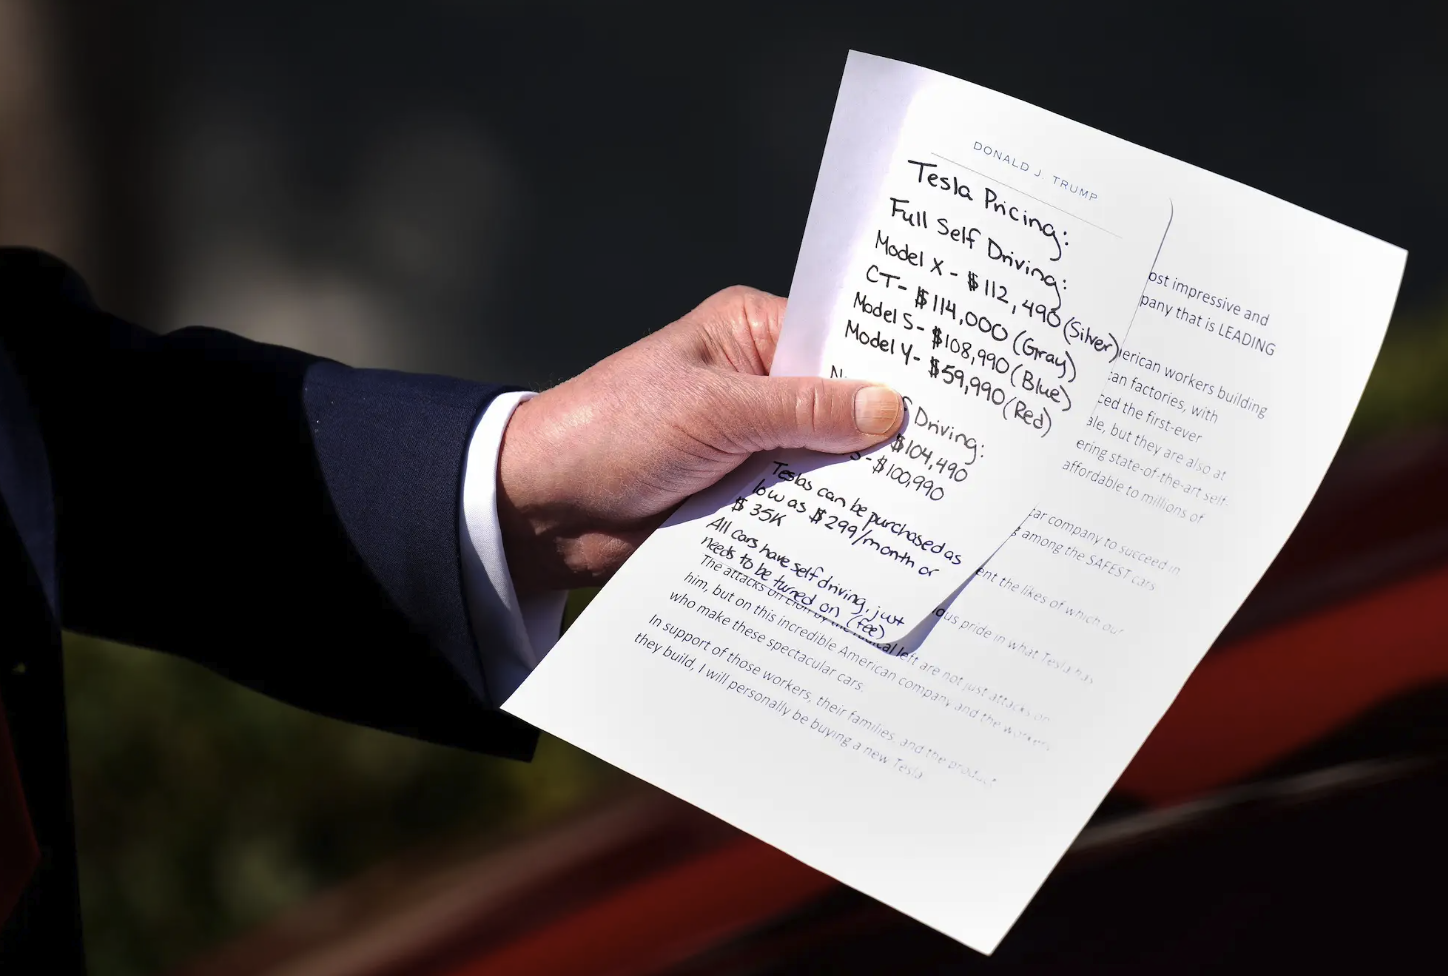 DONALD J. TRUMP
Tesla Pricing:
Full Self Driving:
Model X - $112,490 (Silver)
CT- $114,000 (Gray)
Model S- $108,990 (Blue)
Model Y- $59,990 (Red)
Driving:
$104,490
- $100,990
Teslas can be purchased as
low as $299/month or
$35K
All cars have self driving, just
needs to be turned on (fee)
ost impressive and
pany that is LEADING
erican workers building
can factories, with
ced the first-ever
ale, but they are also at
ering state-of-the-art self-
affordable to millions of
car company to succeed in
among the SAFEST cars
ent the likes of which our
ous pride in what Tesla has
The attacks on by the left are not just attacks on
him, but on this incredible American company and the workers
who make these spectacular cars.
In support of those workers, their families, and the product
they build, I will personally be buying a new Tesla